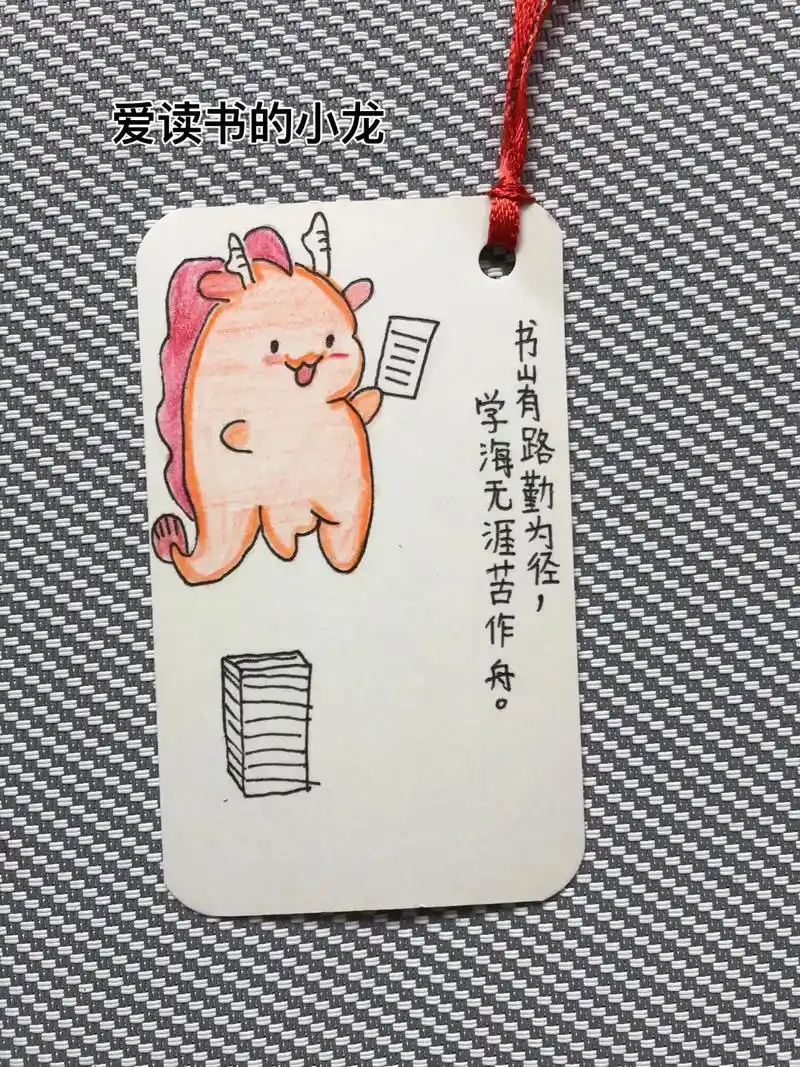 爱读书的小龙
书山有路勤为径，
学海无涯苦作舟。